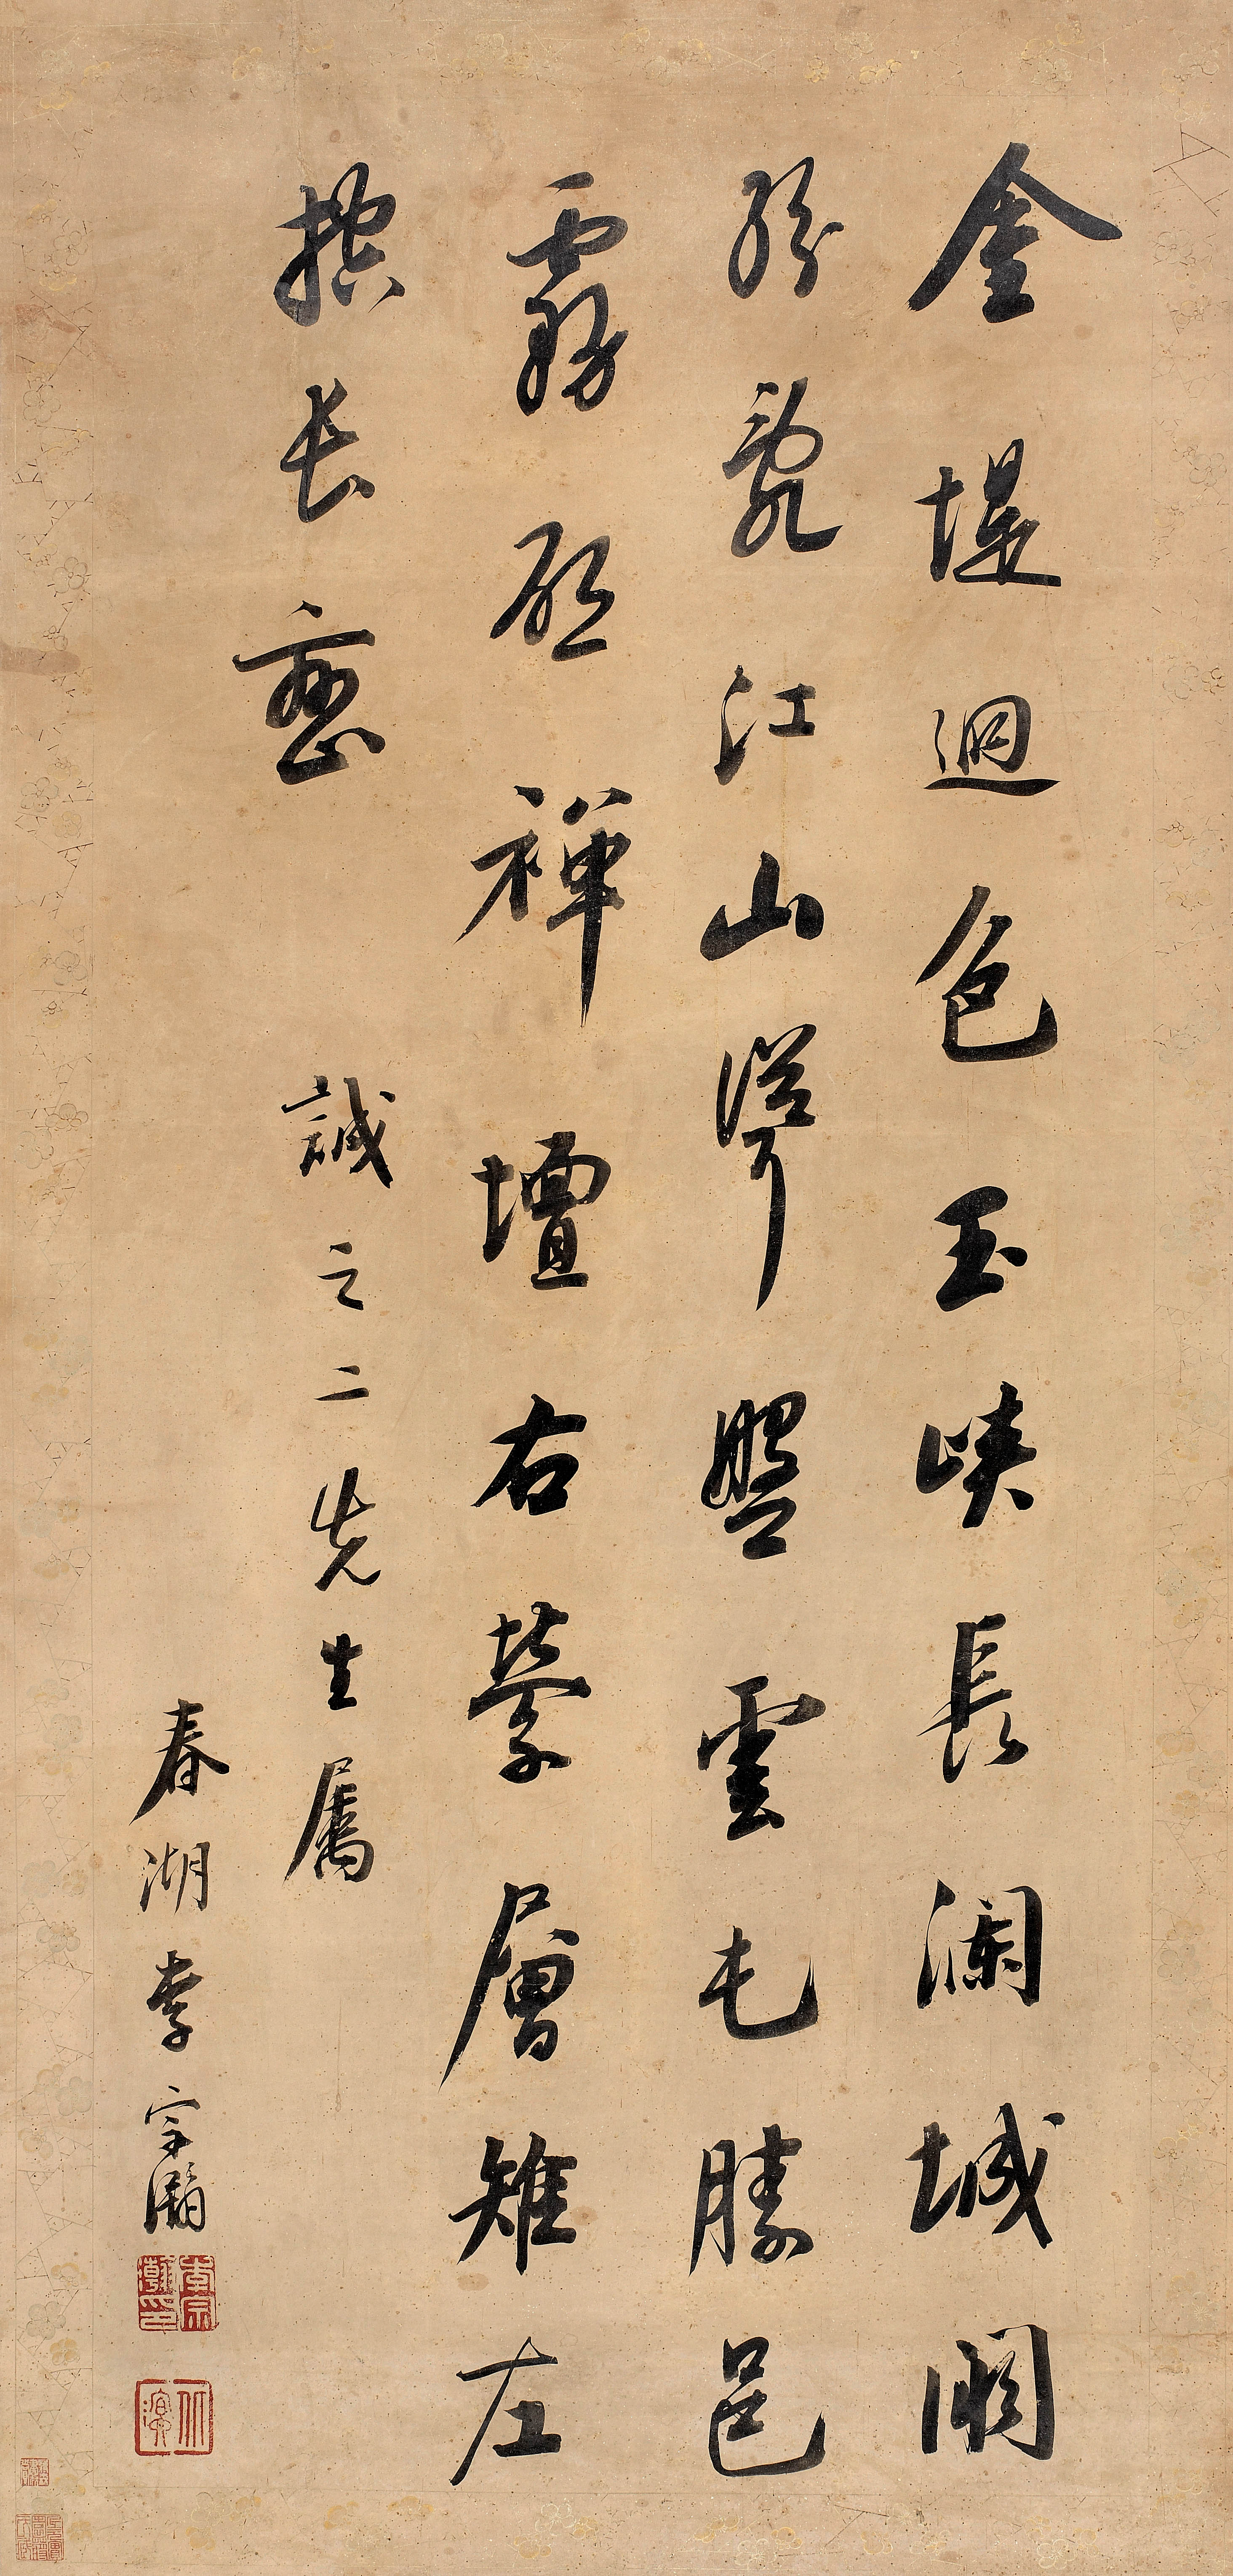 金堤迴色玉峽長瀾城闕
紛亂江山聳盤雲屯勝邑
霧啟禪壇右縈層雉左
控長巒 誠之二先生屬
春湖李宗瀚
李宗瀚印